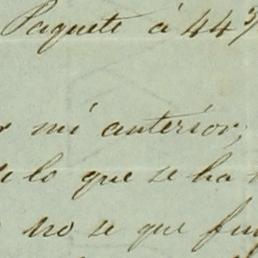 Paquete á 44
mi anterior,
lo que se ha
no se que